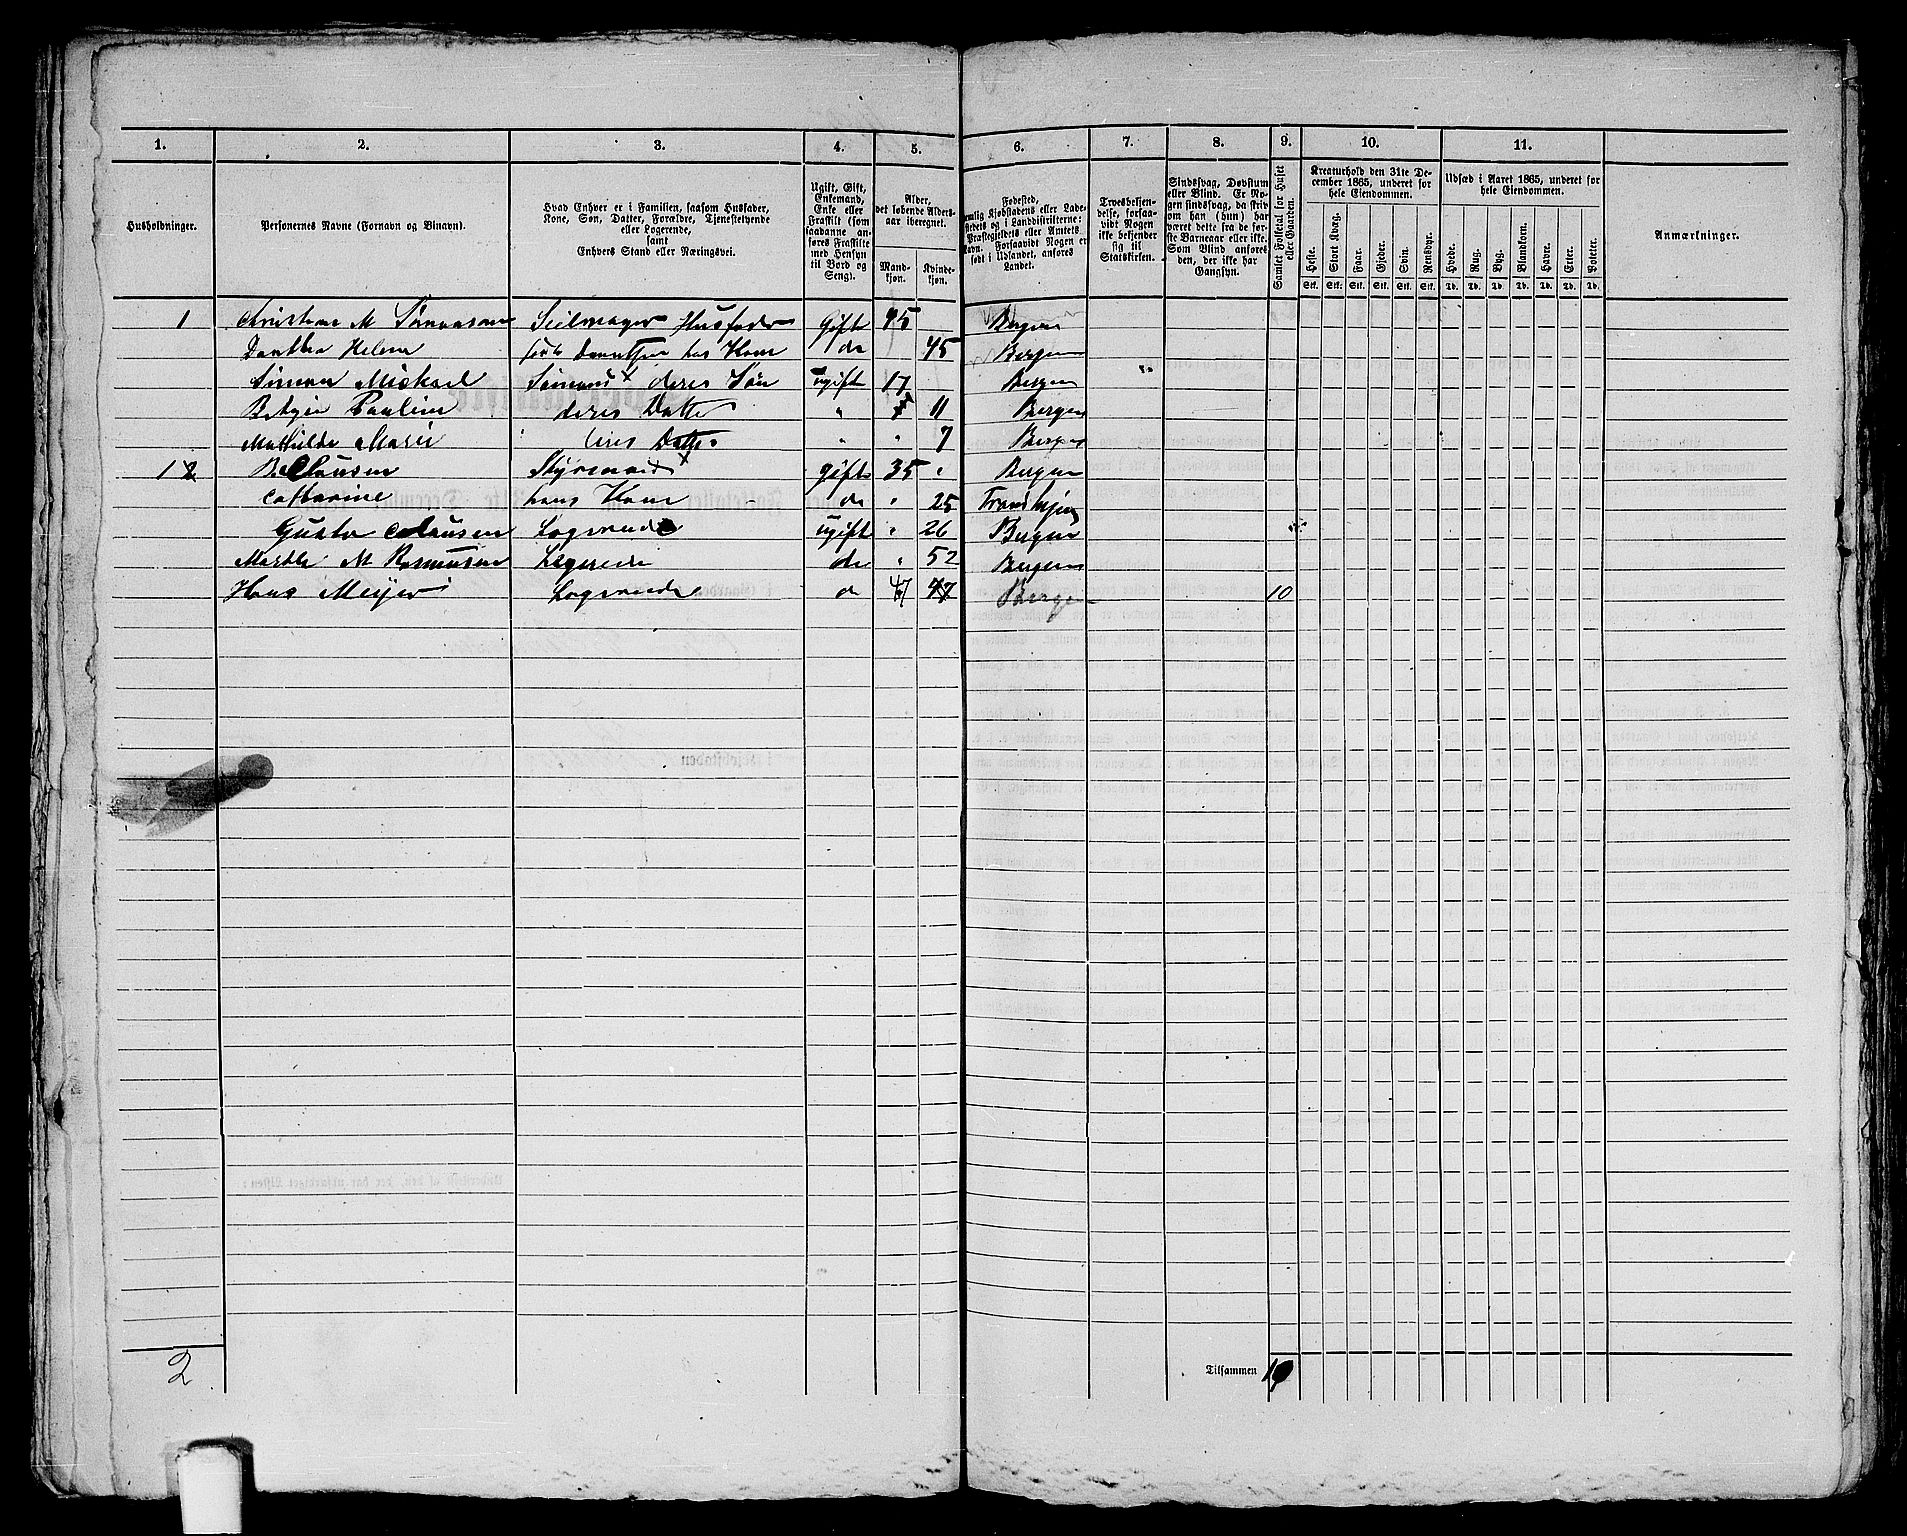 1. 2. 3. 4. 5. 6. 7. 8. 9. 10. 11.
Husholdninger.
Personernes Navne (Fornavn og Binavn).
Hvad Enhver er i Familien, saasom Husfader,
Kone, Søn, Datter, Forældre, Tjenestetyende
eller Logerende,
samt
Enhvers Stand eller Næringsvei.
Ugift, Gift,
Enkemand,
Enke eller
Fraskilt (som
saadanne an-
føres Fraskilte
med Hensyn
til Bord og
Seng).
Alder,
det løbende Alders-
aar iberegnet.
Mand-
kjøn.
Kvinde-
kjøn.
Fødested,
nemlig Kjøbstadens eller Lade-
stedets og i Landdistrikterne:
Præstegjeldets eller Amtets
Navn. Forsaavidt Nogen er
født i Udlandet, anføres
Landet.
Troesbekjen-
delse, forsaa-
vidt Nogen
ikke bekjender
sig til
Statskirken.
Sindssvag, Døvstum
eller Blind. Er No-
gen sindssvag, da skriv
om han (hun) har
været dette fra de før-
ste Barneaar eller ikke.
Som Blind anføres
den, der ikke har
Gangsyn.
Samlet Folketal for Huset
eller Gaarden.
Kreaturhold den 31te De-
cember 1865, underet for
hele Eiendommen.
Heste. Stort Kvæg. Faar. Gjeder. Svin. Rensdyr.
Stk. Stk. Stk. Stk. Stk. Stk.
Udsæd i Aaret 1865, underet for
hele Eiendommen.
Hvede. Rug. Byg. Blandkorn. Havre. Erter. Poteter.
Td. Td. Td. Td. Td. Td. Td.
Anmærkninger.
1 Christian M Sørensen Seilmager Husfader Gift 45 Bergen
Dorthea Helene hans Kone do 45 Bergen
Simon Mickael Sømand x deres Søn ugift 17 Bergen
Pauline deres Datter " 11 Bergen
Mathilde Marie deres Datter " " 7 Bergen
12 B Clausen Styrmand x gift 35 " Bergen
Catharine hans Kone do " 25 Trondhjem
Gusta Clausen Logerende ugift " 26 Bergen
Marthe M Rasmussen Logerende do " 52 Bergen
Hans Meijer Logerende do 47 47 Bergen 10
2
Tilsammen 10